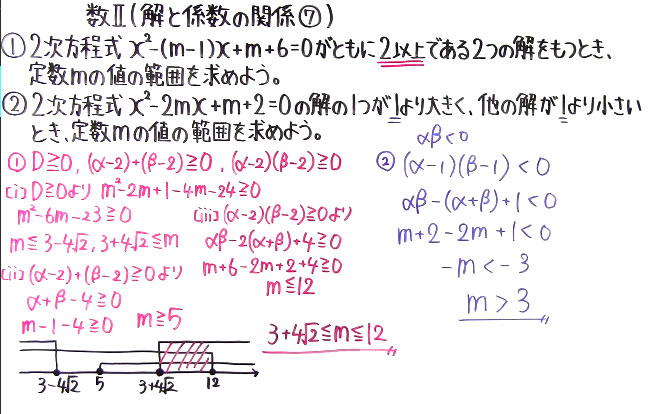 数Ⅱ(解と係数の関係⑦)
①2次方程式 x²-(m-1)x+m+6=0がともに2以上である2つの解をもつとき、
定数mの値の範囲を求めよう。
②2次方程式 x²-2mx+m+2=0の解の1つが1より大きく、他の解が1より小さい
とき、定数mの値の範囲を求めよう。
① D≧0, (α-2)+(β-2)≧0, (α-2)(β-2)≧0
(i) D≧0より m²-2m+1-4m-24≧0
m²-6m-23≧0
m≦3-4√2, 3+4√2≦m
(ii) (α-2)+(β-2)≧0より
α+β-4≧0
m-1-4≧0 m≧5
(iii) (α-2)(β-2)≧0より
αβ-2(α+β)+4≧0
m+6-2m+2+4≧0
m≦12
3-4√2 5 3+4√2 12
3+4√2≦m≦12
αβ<0
② (α-1)(β-1)<0
αβ-(α+β)+1<0
m+2-2m+1<0
-m<-3
m>3